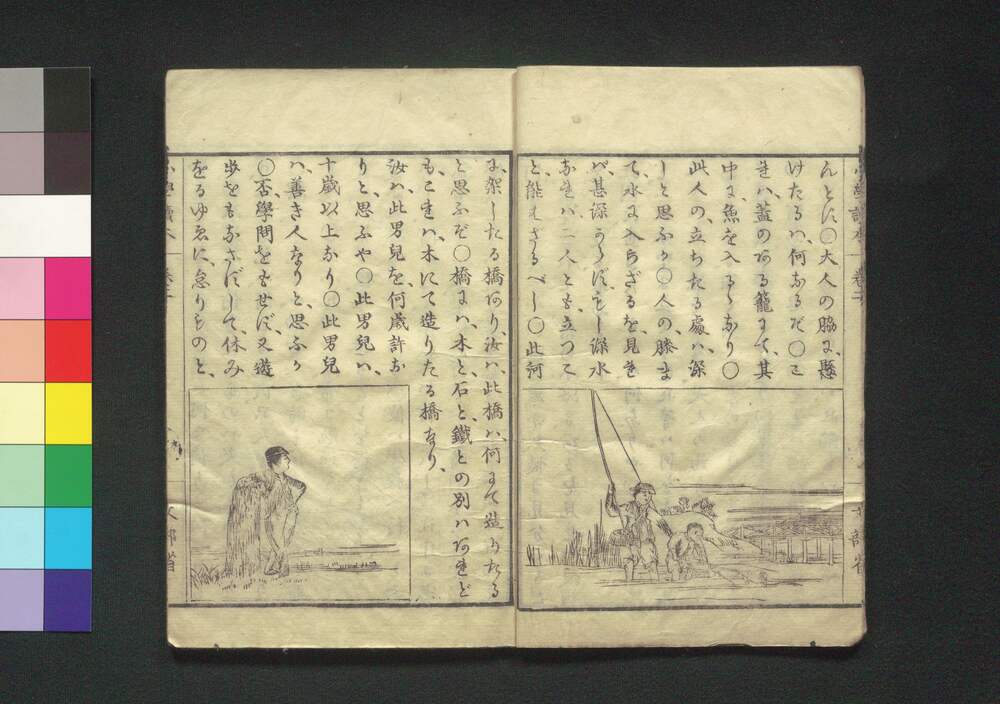 んとに○大人の脇に、懸
けたるハ、何なるぞ○こ
れハ、蓋のある籠にて、其
中に、魚を入るゝなり○
此人の、立ちたる處ハ、深
しと思ふか○人の、膝ま
て、水に入らざるを、見れ
バ、甚深からず、もし深水
なれハ、二人とも、立つこ
と、能はさるべし○此河
に、架したる橋あり、汝ハ、此橋ハ、何にて造りたる
と思ふぞ○橋にハ、木と、石と、鐵との別ハあれど
も、これハ、木にて造りたる橋なり、
汝ハ、此男兒を、何歳許な
りと、思ふや○此男兒ハ、
十歳以上なり○此男兒
ハ、善き人なりと、思ふか
○否、學問をもせず、又遊
歩をもなさずして、休み
をるゆゑに、怠りものと、
文部省